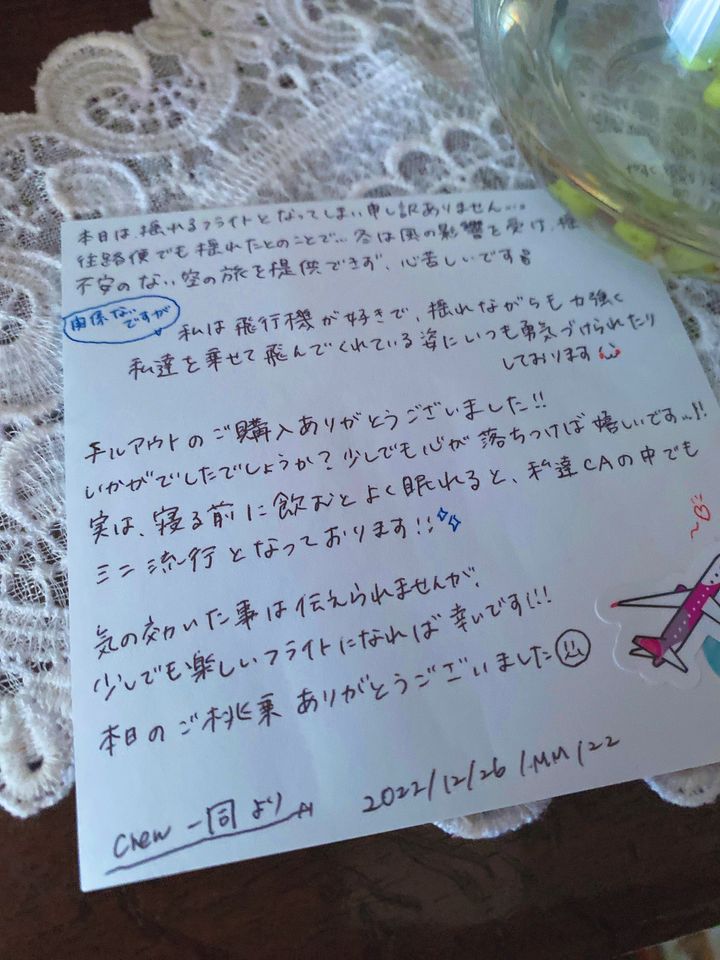 本日は、揺れるフライトとなってしまい申し訳ありません...。
往路便でも揺れたとのことで... 冬は風の影響を受け、揺
不安のない空の旅を提供できず、心苦しいです
関係ないですが
私は飛行機が好きで、揺れながらも力強く
私達を乗せて飛んでくれている姿にいつも勇気づけられたり
しております
チルアウトのご購入ありがとうございました!!
いかがでしたでしょうか?少しでも心が落ちつけば嬉しいです...!!
実は、寝る前に飲むとよく眠れると、私達CAの中でも
ミニ流行となっております!!
気の効いた事は伝えられませんが、
少しでも楽しいフライトになれば幸いです!!!
本日のご搭乗ありがとうございました
Crew一同より
2022/12/26 /MM/22